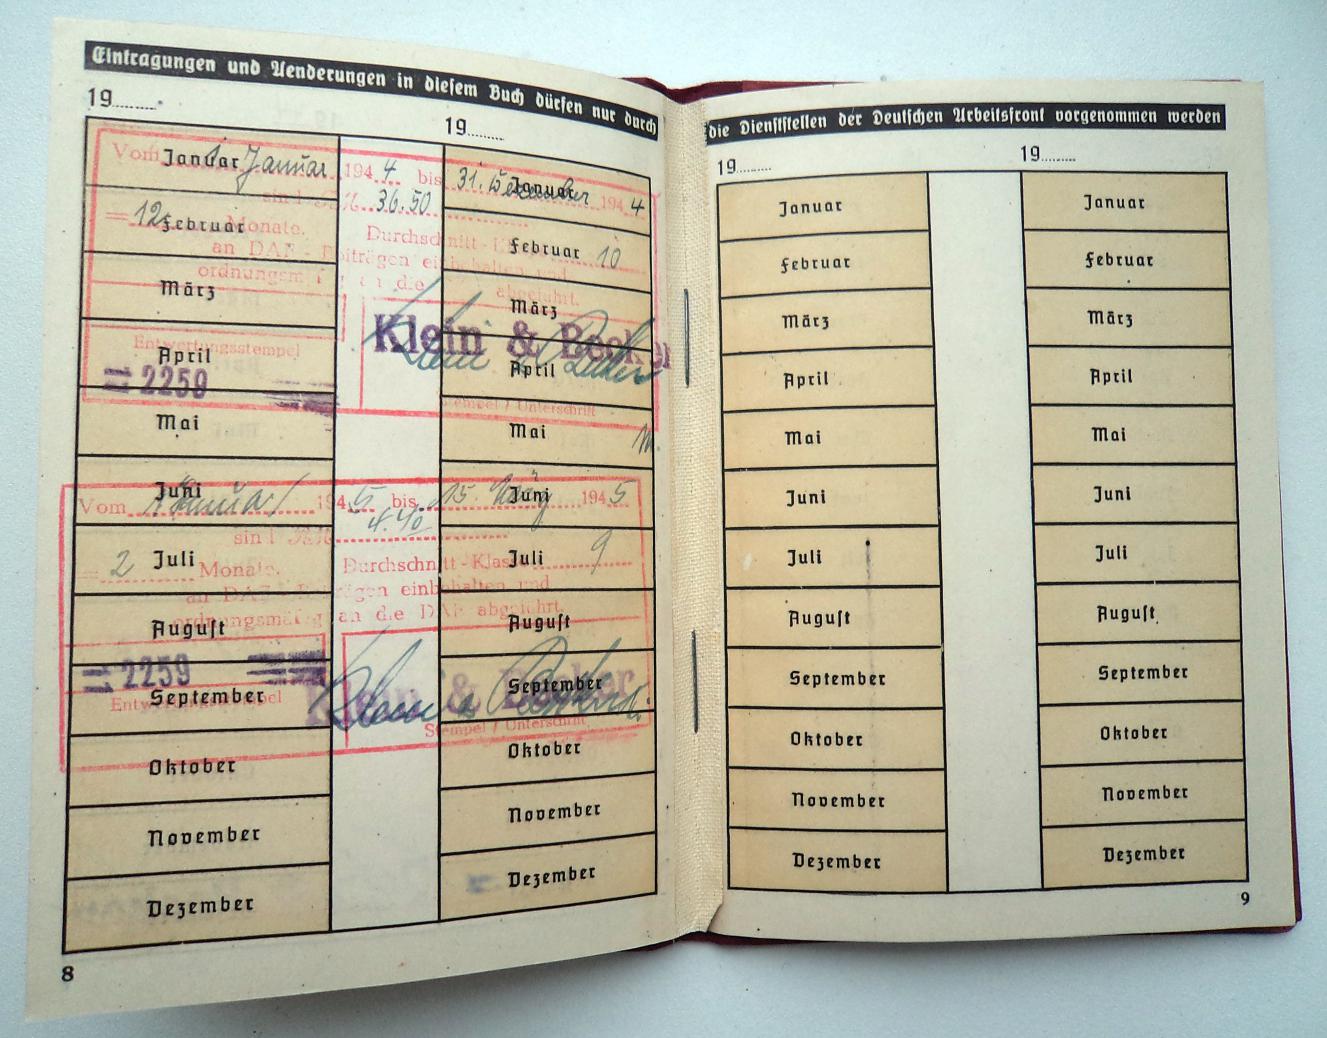 Eintragungen und Aenderungen in diesem Buch dürfen nur durch
19........ 19........
Januar Januar
Februar Februar
März März
April April
Mai Mai
Juni Juni
Juli Juli
August August
September September
Oktober Oktober
November November
Dezember Dezember
Vom Januar 1944 bis 31. Dezember 1944
sind 36.50
= 12 Monate. Durchschnitt- 10
an DAF-Beiträgen einbehalten und
ordnungsmäßig an die abgeführt.
Klein & Becker
Entwertungsstempel
= 2259
Stempel / Unterschrift
Vom Januar 1945 bis 15. März 1945
sind 4.40
= 2 Monate. Durchschnitt-Klasse 9
an DAF-Beiträgen einbehalten und
ordnungsmäßig an die DAF abgeführt.
= 2259
Klein & Becker
Entwertungsstempel
Stempel / Unterschrift
8
die Dienststellen der Deutschen Arbeitsfront vorgenommen werden
19........ 19........
Januar Januar
Februar Februar
März März
April April
Mai Mai
Juni Juni
Juli Juli
August August
September September
Oktober Oktober
November November
Dezember Dezember
9